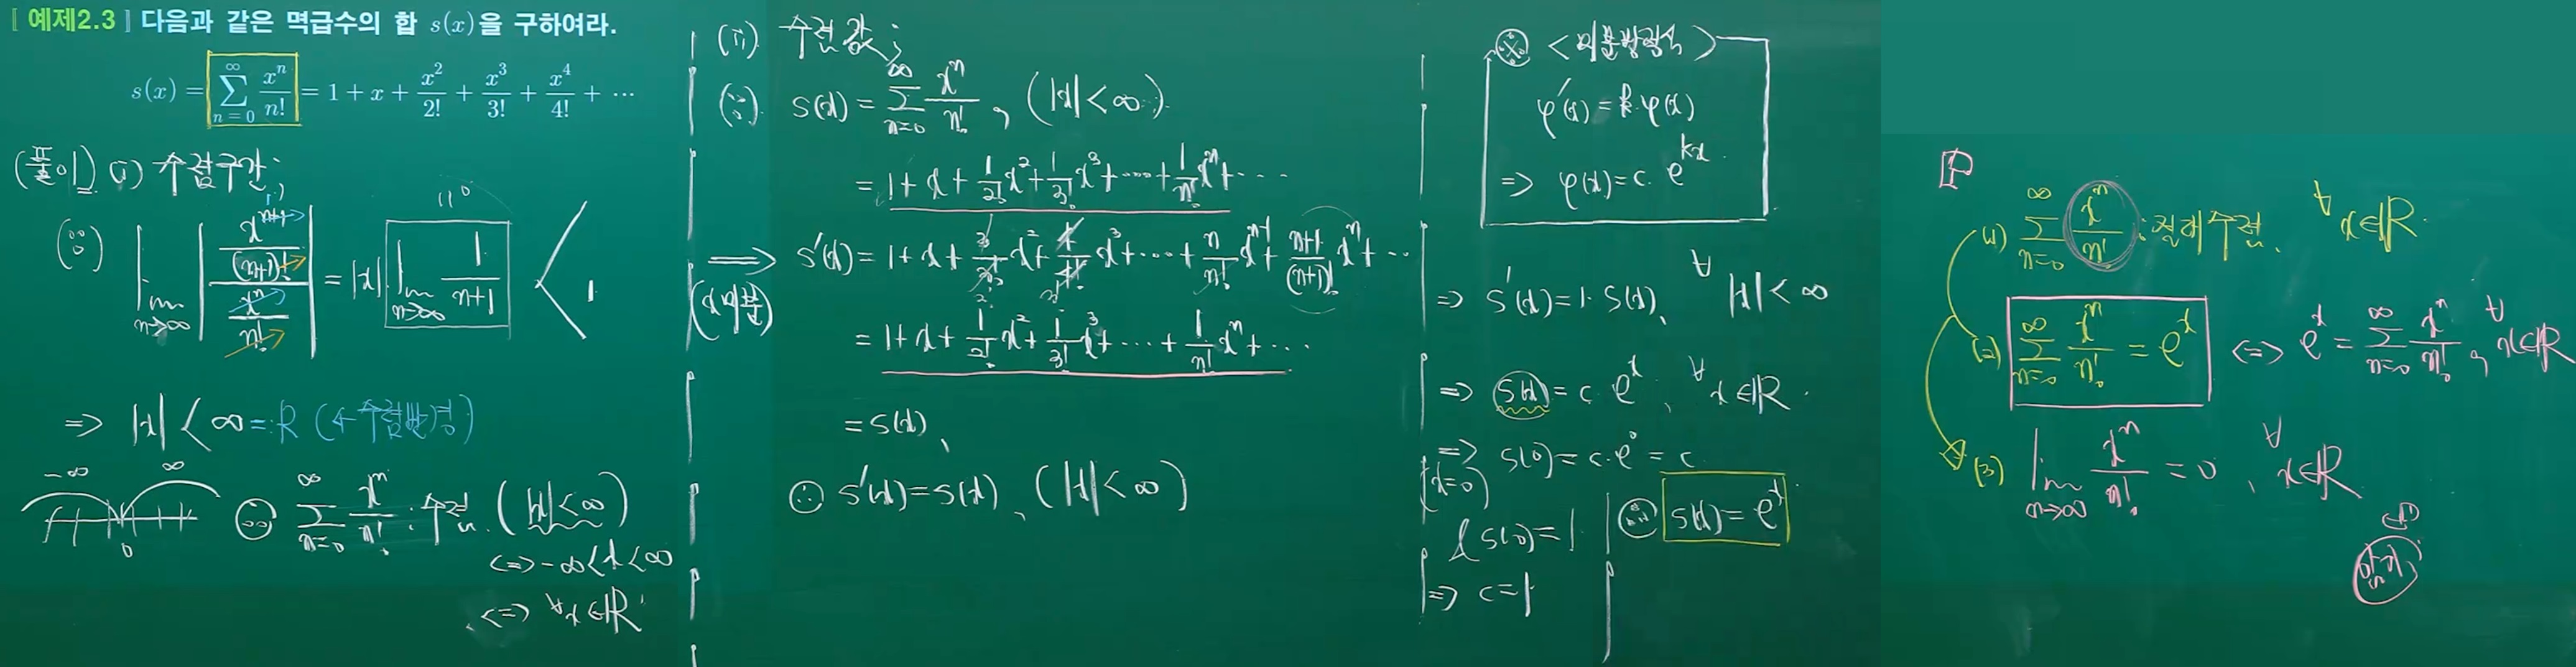 [ 예제2.3 ] 다음과 같은 멱급수의 합 s(x)을 구하여라.
s(x) = ∑_{n=0}^{∞} x^n/n! = 1 + x + x^2/2! + x^3/3! + x^4/4! + ⋯
(풀이) (i) 수렴구간;
(∵) lim_{n→∞} | (x^{n+1}/(n+1)!) / (x^n/n!) | = |x| lim_{n→∞} 1/(n+1) < 1
"0
⇒ |x| < ∞ = R (← 수렴반경)
-∞ ∞
0
∴ ∑_{n=0}^{∞} x^n/n! : 수렴. (|x| < ∞)
⇔ -∞ < x < ∞
⇔ ∀x∈ℝ
(ii) 수렴값;
(∵) s(x) = ∑_{n=0}^{∞} x^n/n!, (|x| < ∞)
= 1 + x + 1/2! x^2 + 1/3! x^3 + ⋯ + 1/n! x^n + ⋯
⇒ s'(x) = 1 + x + 3/3! x^2 + 4/4! x^3 + ⋯ + n/n! x^{n-1} + (n+1)/(n+1)! x^n + ⋯
(x 미분)
= 1 + x + 1/2! x^2 + 1/3! x^3 + ⋯ + 1/n! x^n + ⋯
= s(x),
∴ s'(x) = s(x), (|x| < ∞)
※ <미분방정식>
φ'(x) = k·φ(x)
⇒ φ(x) = c·e^{kx}
⇒ s'(x) = 1·s(x), ∀|x| < ∞
⇒ s(x) = c·e^x, ∀x∈ℝ.
⇒ s(0) = c·e^0 = c
(x=0)
& s(0) = 1
⇒ c = 1
∴ s(x) = e^x
P
(1) ∑_{n=0}^{∞} x^n/n! : 절대수렴. ∀x∈ℝ
(2) ∑_{n=0}^{∞} x^n/n! = e^x ⇔ e^x = ∑_{n=0}^{∞} x^n/n!, ∀x∈ℝ
(3) lim_{n→∞} x^n/n! = 0, ∀x∈ℝ
암기